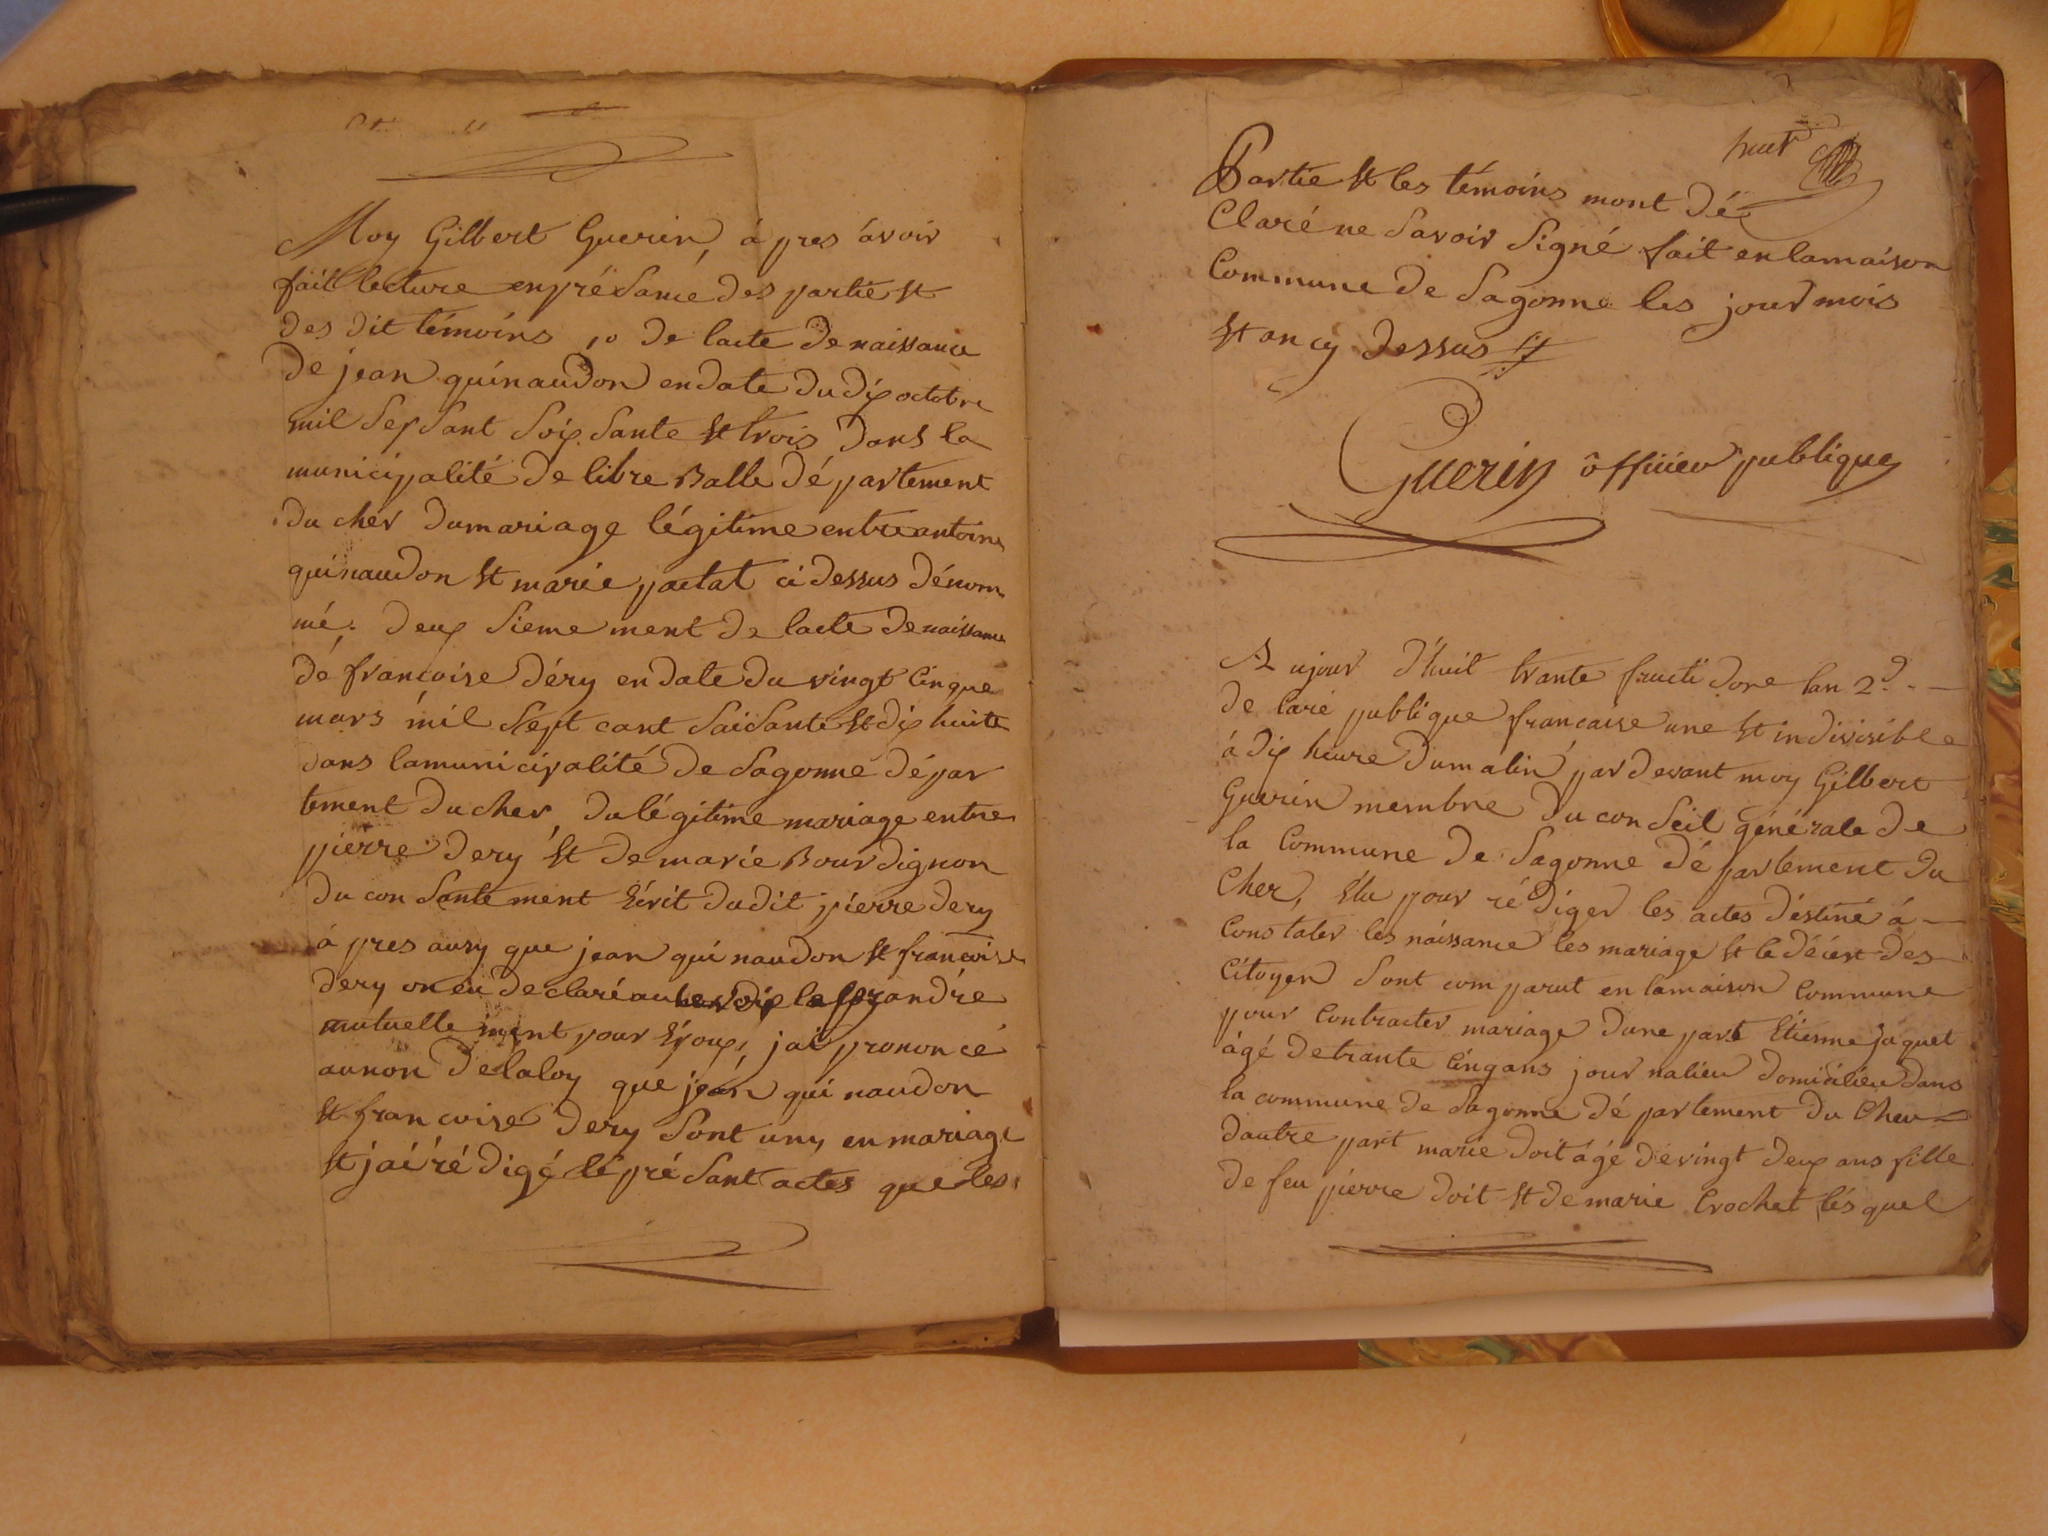 Moy Gilbert Guerin, á pres ávoir
fait lecture enpréSance des partie et
des dit témoins 10 de lacte denaissance
de jean quinaudon endate du dix octobre
mil SepSant SoixSante et trois dans la
municipalité de libre Valle dé partement
du cher dumariage légitime entre antoine
quinaudon et marie pactat ci dessus dénom
mé. deux Sieme ment de lacte denaissance
dé francoise déry endate du vingt Cinque
mars mil Sept cant SaiSante et dix huitte
dans lamunicipalité de Sagonne dépar
tement ducher du légitime mariage entre
pierre dery et de marie Bourdignon
du con Sante ment Ecrit dudit pierre dery
á pres ausy que jean quinaudon et francoise
dery on eu declaré a la prandre
mutuelle ment pour Epoux, jai prononcé
aunon delaloy que jean quinaudon
et francoise dery Sont uny en mariage
et jai rédigé lé préSant actes que les
huit
Partie et les témoins mont dé
Claré ne Savoir Signé fait enlamaison
Commune de Sagonne les jour mois
et an cy dessus
Guerin officier publique
Aujour d'huit trante fructidore lan 2d.
de laré publique francaise une et indivisible
á dix heure dumatin pardevant moy Gilbert
Guerin membre du conSeil générale de
la Commune de Sagonne dé partement du
Cher, Elu pour ré diger les actes déstiné á
Constater les náissance les mariage et le décest des
Citoyen Sont comparut en lamaison Commune
pour Contracter mariage dune part Etienne jaquet
ágé detrante Cinqans journalieu domicilieu dans
la commune de Sagonne dé partement du Cheu
dautre part marie doit ágé devingt deux ans fille
de feu pierre doit et de marie Crochet lésquel